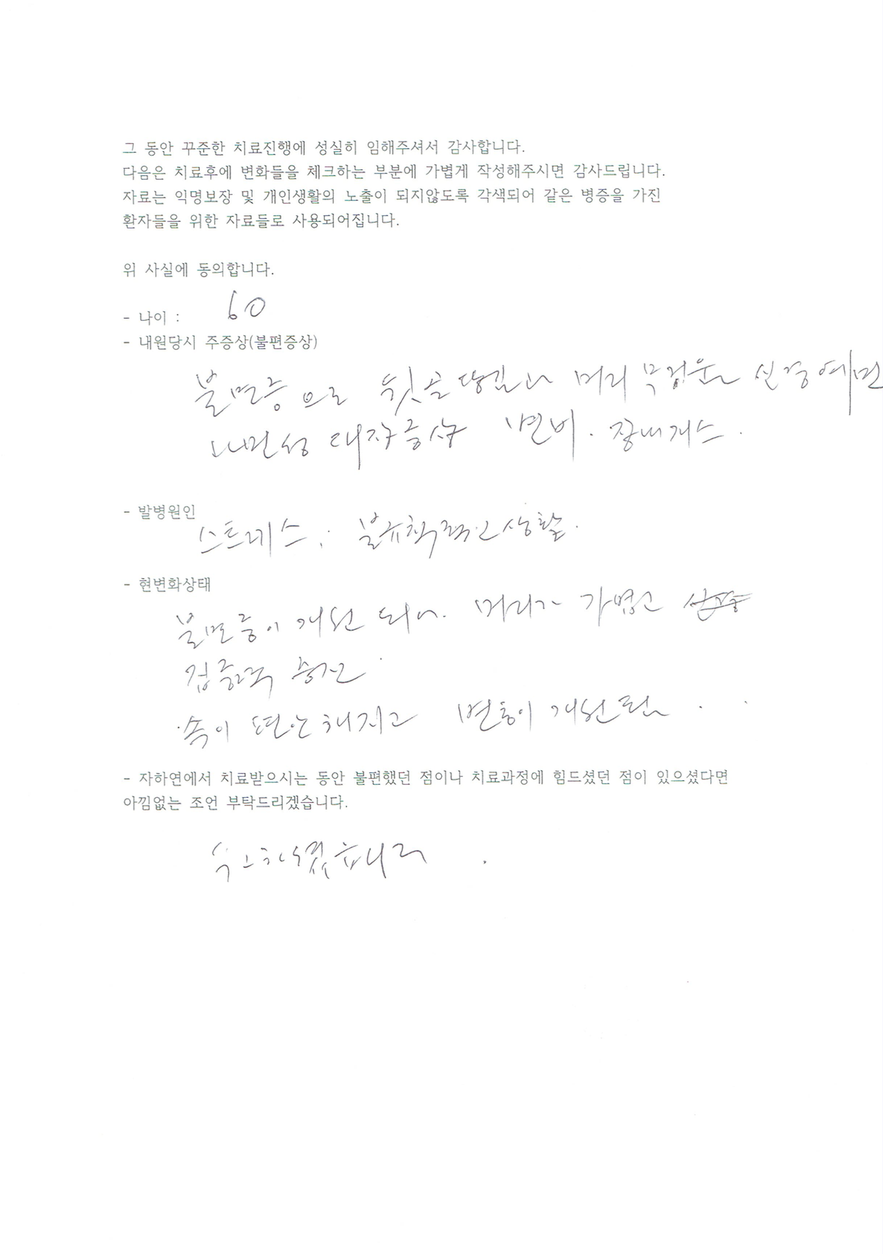 그 동안 꾸준한 치료진행에 성실히 임해주셔서 감사합니다.
다음은 치료후에 변화들을 체크하는 부분에 가볍게 작성해주시면 감사드립니다.
자료는 익명보장 및 개인생활의 노출이 되지않도록 각색되어 같은 병증을 가진
환자들을 위한 자료들로 사용되어집니다.
위 사실에 동의합니다.
- 나이 : 60
- 내원당시 주증상(불편증상)
불면증으로 뒷골 당김과 머리 무거움 신경예민
과민성 대장증상 변비. 장내가스.
- 발병원인
스트레스. 불규칙적인 생활.
- 현변화상태
불면증이 개선 되어. 머리가 가볍고
집중력 증진
속이 편안해지고 변통이 개선됨
- 자하연에서 치료받으시는 동안 불편했던 점이나 치료과정에 힘드셨던 점이 있으셨다면
아낌없는 조언 부탁드리겠습니다.
수고하셨습니다.